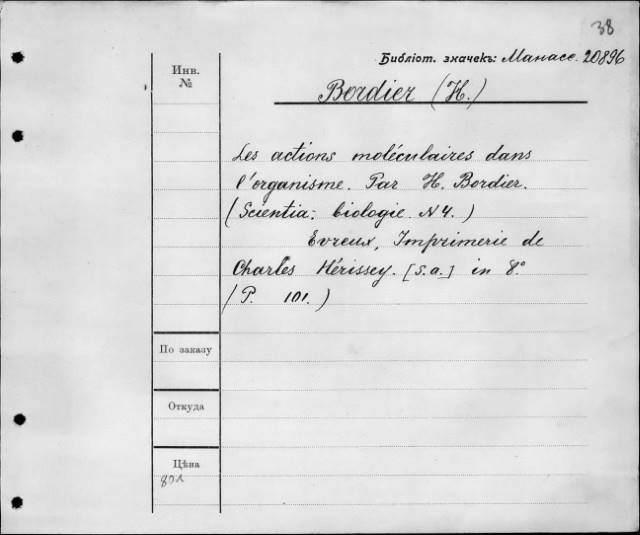 38
Библіот. значекъ: Манасе. 20896
Инв.
№
Bordier (H.)
Les actions moléculaires dans
l'organisme. Par H. Bordier.
(Scientia: biologie. N 4.)
Evreux, Imprimerie de
Charles Hérissey. [S.a.] in 8°
(P. 101.)
По заказу
Откуда
Цѣна